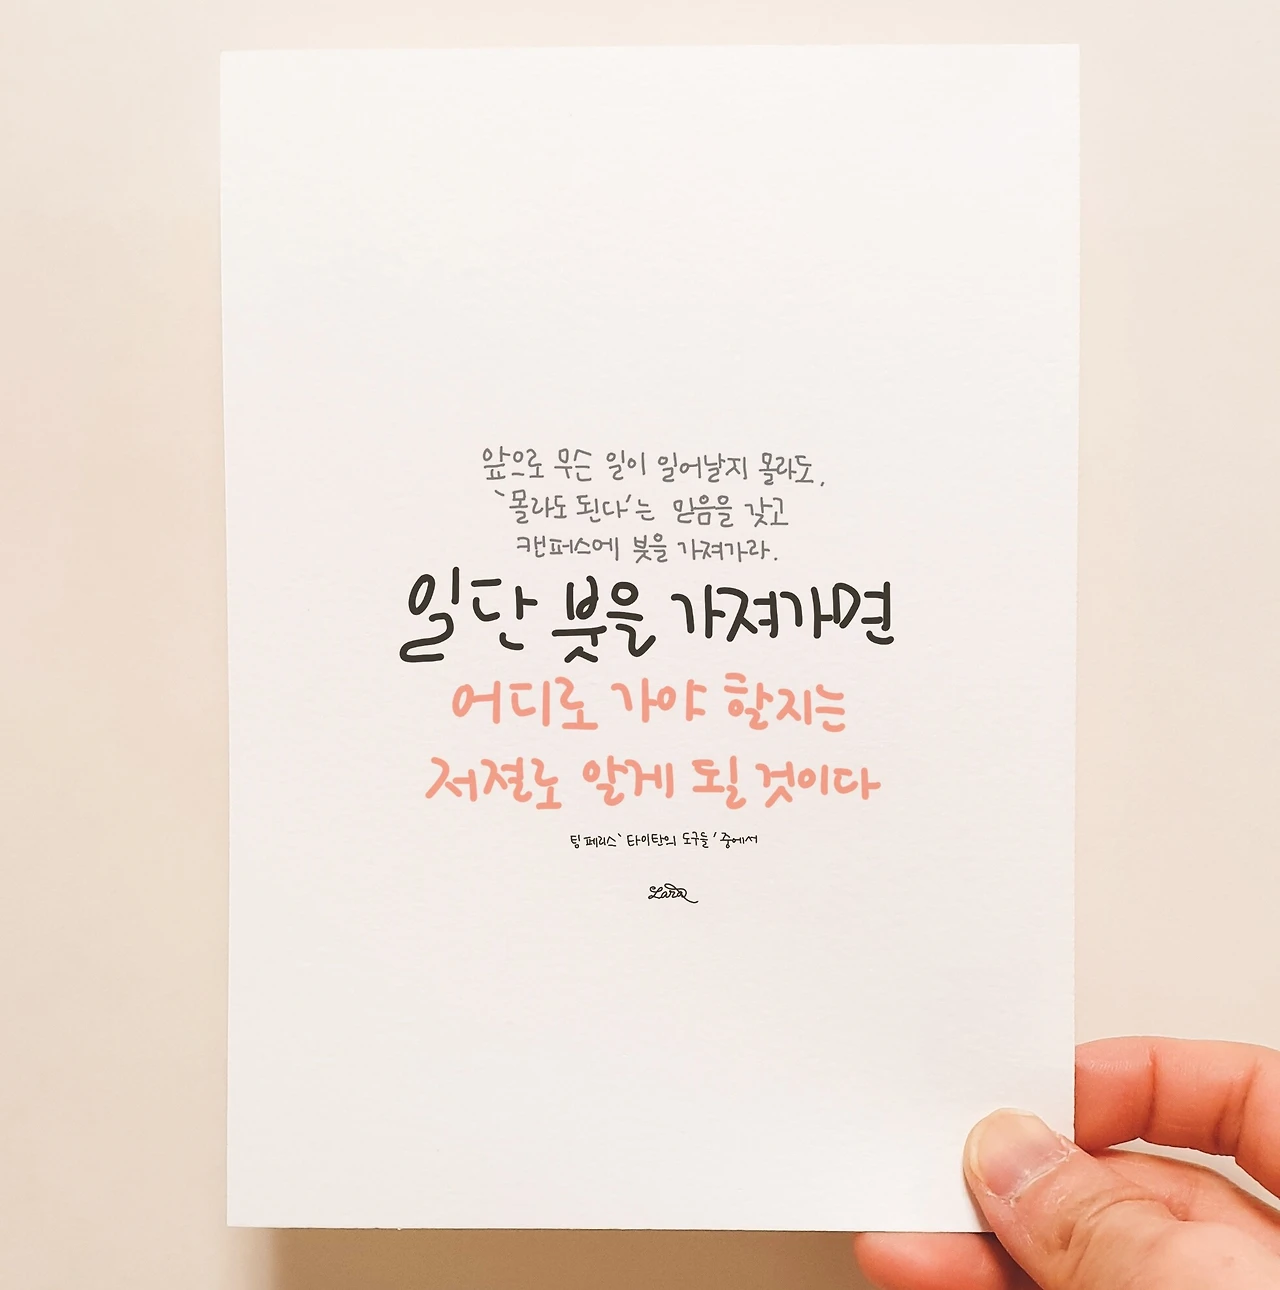 앞으로 무슨 일이 일어날지 몰라도,
`몰라도 된다'는 믿음을 갖고
캔퍼스에 붓을 가져가라.
일단 붓을 가져가면
어디로 가야 할지는
저절로 알게 될 것이다
팀 페리스 `타이탄의 도구들' 중에서
Lara